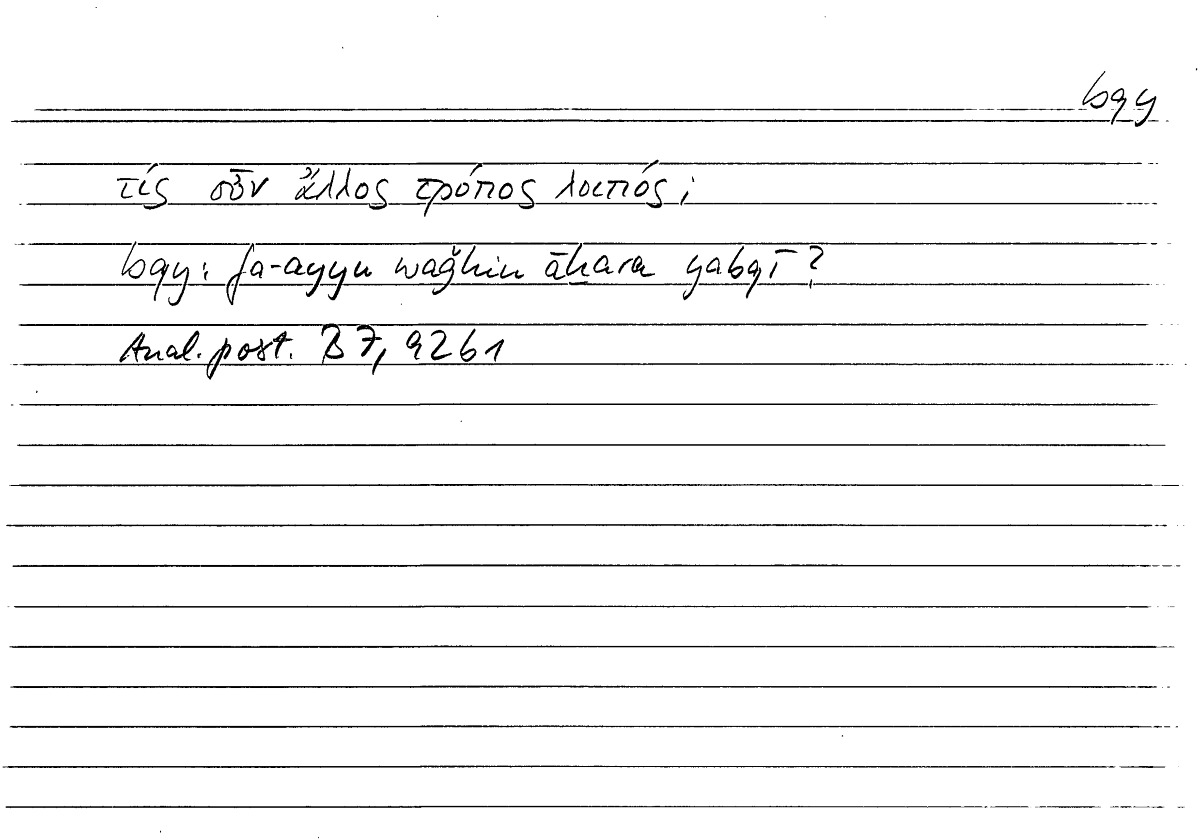 bqy
τίς οὖν ἄλλος τρόπος λοιπός;
bqy: fa-ayyu wağhin āḫara yabqī?
Anal. post. B 7, 92b1